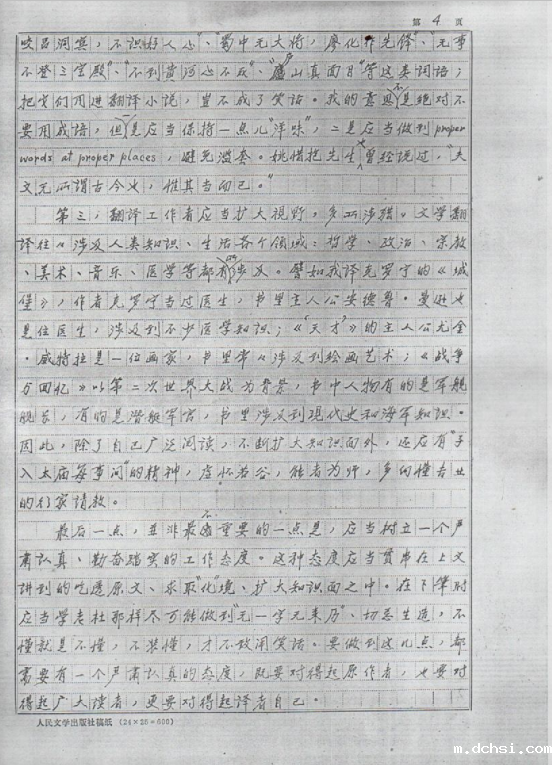 第 4 页
咬吕洞宾，不识好人心”、“蜀中无大将，廖化作先锋”、“无事
不登三宝殿”、“不到黄河心不死”、“庐山真面目”等这类词语；
把它们用进翻译小说，岂不成了笑话。我的意思不是绝对不
要用成语，但一是应当保持一点儿“洋味”，二是应当做到proper
words at proper places，避免滥套。姚惜抱先生曾经说过，“大
文无所谓古今也，惟其当而已。”
第三，翻译工作者应当扩大视野，多所涉猎。文学翻
译往往涉及人类知识、生活各个领域：哲学、政治、宗教
、美术、音乐、医学等都有所涉及。譬如我译克罗宁的《城
堡》，作者克罗宁当过医生，书里主人公安德鲁·曼逊也
是位医生，涉及到不少医学知识；《“天才”》的主人公尤金
·威特拉是一位画家，书里常常涉及到绘画艺术；《战争
与回忆》以第二次世界大战为背景，书中人物有的是军舰
舰长，有的是潜艇军官，书里涉及到现代史和海军知识。
因此，除了自己广泛阅读，不断扩大知识面外，还应有“子
入太庙每事问”的精神，虚怀若谷，能者为师，多向懂专业
的行家请教。
最后一点，並非最不重要的一点是，应当树立一个严
肃认真、勤奋踏实的工作态度。这种态度应当贯串在上文
讲到的吃透原文、求取“化”境、扩大知识面之中。在下笔时
应当学老杜那样尽可能做到“无一字无来历”、切忌生造，不
懂就是不懂，不装懂，才不致闹笑话。要做到这几点，都
需要有一个严肃认真的态度，既要对得起原作者，也要对
得起广大读者，更要对得起译者自己。
人民文学出版社稿纸 (24×25=600)
m.dchsi.com